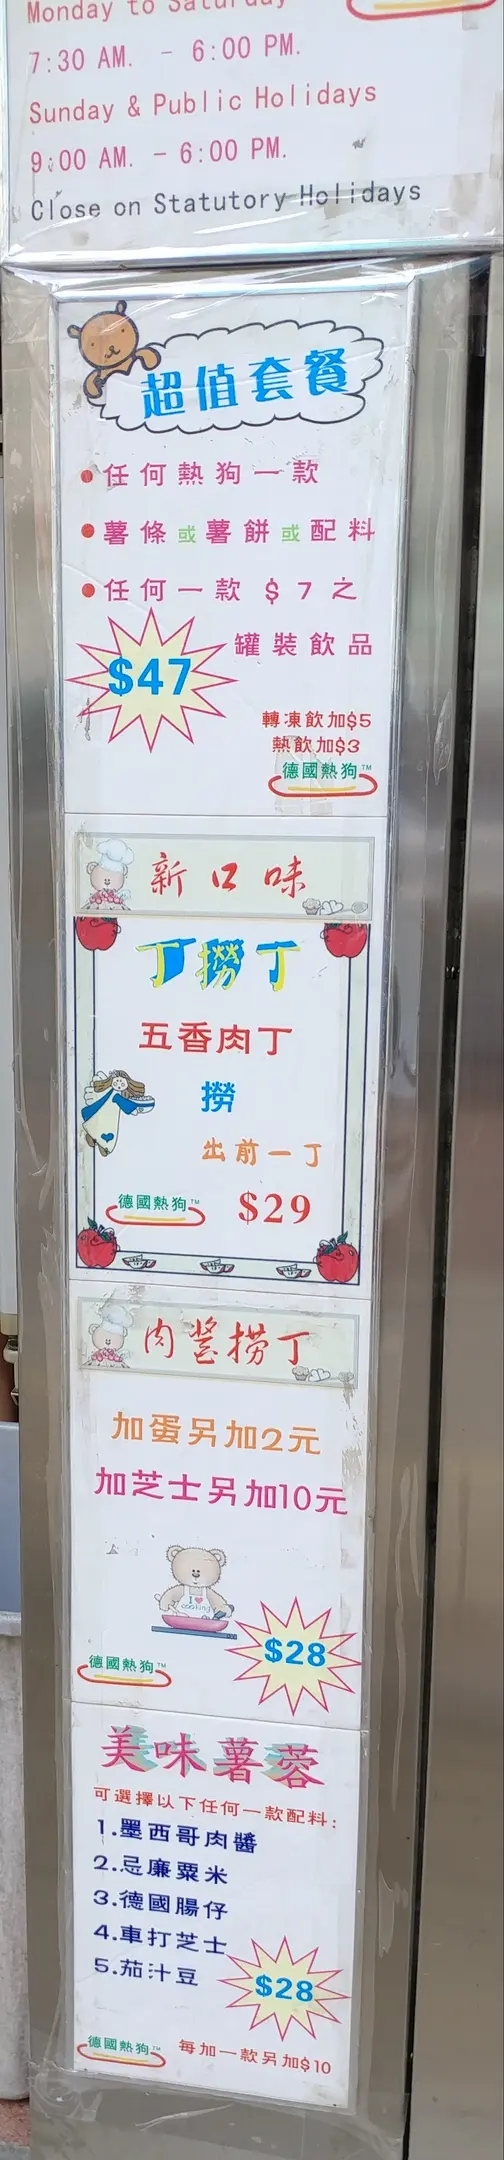 Monday to Saturday
7:30 AM. - 6:00 PM.
Sunday & Public Holidays
9:00 AM. - 6:00 PM.
Close on Statutory Holidays
超值套餐
任何熱狗一款
薯條或薯餅或配料
任何一款$7之
罐裝飲品
$47
轉凍飲加$5
熱飲加$3
德國熱狗™
新口味
丁撈丁
五香肉丁
撈
出前一丁
德國熱狗™
$29
肉醬撈丁
加蛋另加2元
加芝士另加10元
I ♥ cooking
$28
德國熱狗™
美味薯蓉
可選擇以下任何一款配料:
1.墨西哥肉醬
2.忌廉粟米
3.德國腸仔
4.車打芝士
5.茄汁豆
$28
德國熱狗™
每加一款另加$10